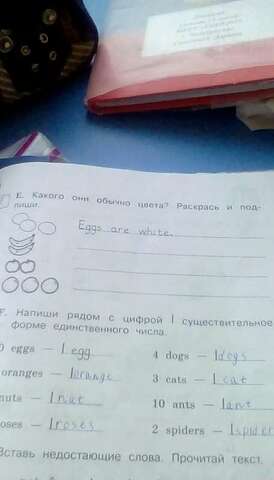 Е. Какого они обычно цвета? Раскрась и под-
пиши.
Eggs are white.
F. Напиши рядом с цифрой 1 существительное
форме единственного числа.
0 eggs — 1 egg
4 dogs — 1 dogs
oranges — 1 orange
3 cats — 1 cat
nuts — 1 nut
10 ants — 1 ant
oses — 1 roses
2 spiders — 1 spider
Вставь недостающие слова. Прочитай текст.